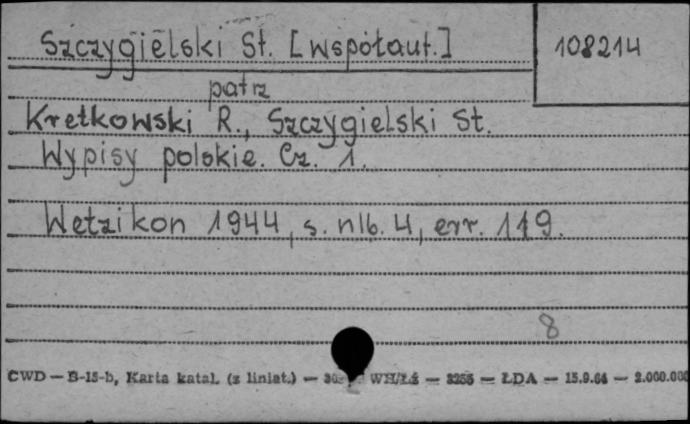 Szczygielski St. [współaut.]
108214
patrz
Kretkowski R., Szczygielski St.
Wypisy polskie. Cz. 1.
Wetzikon 1944, s. nlb. 4, err. 119.
8
CWD — B-15-b, Karta katal. (z liniat.) — WH/Łż — 3255 — ŁDA — 15.9.64 — 2.000.000